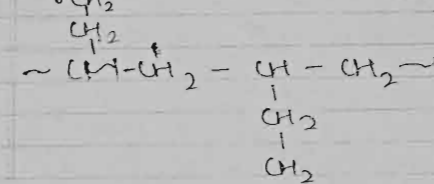 CH2
CH2
~ CH-CH2 - CH - CH2 ~
CH2
CH2